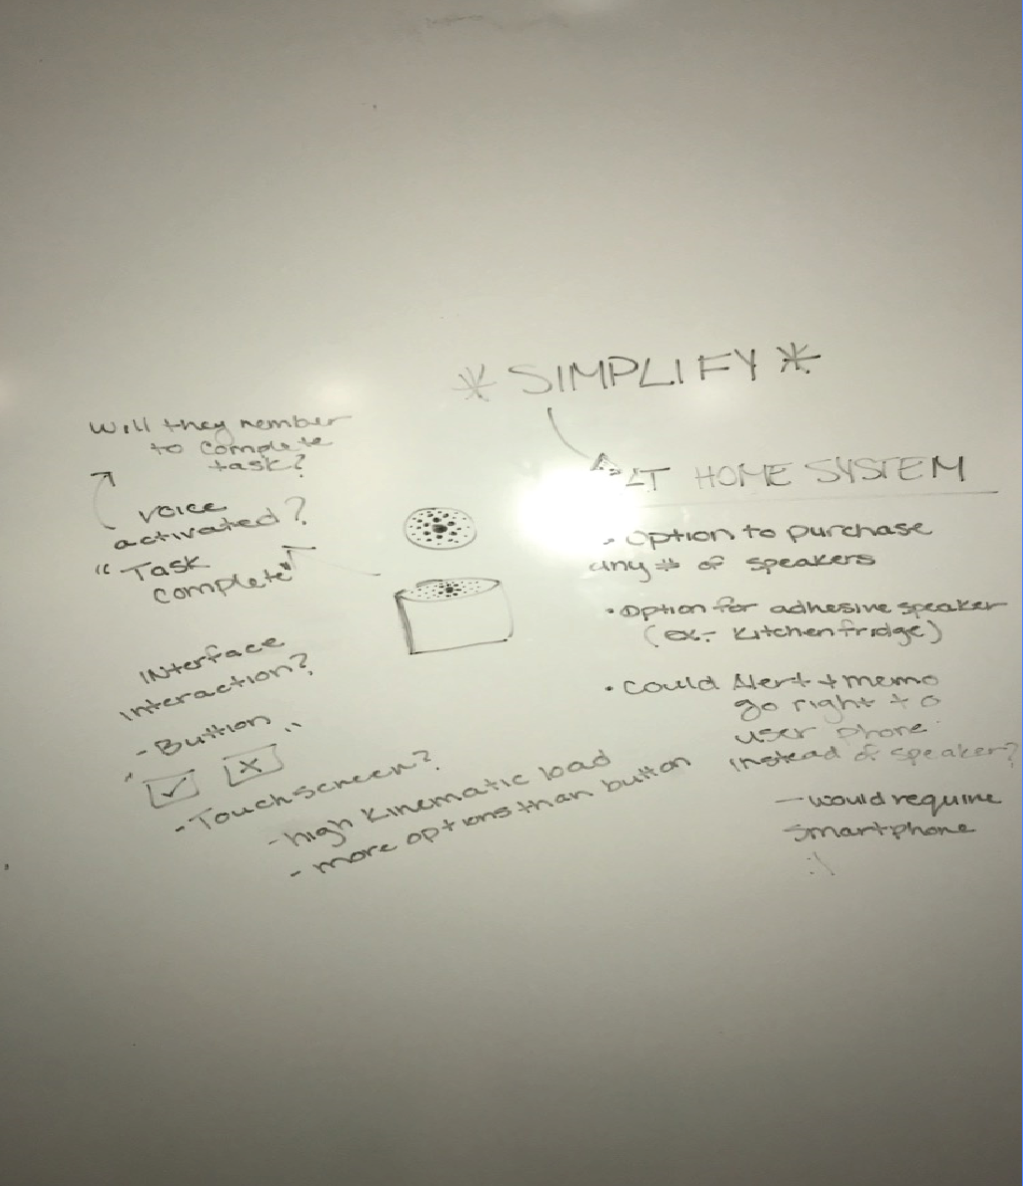 * SIMPLIFY *
AT HOME SYSTEM
• Option to purchase
any # of speakers
• Option for adhesive speaker
(ex:- kitchen fridge)
• Could Alert + memo
go right to
user phone
instead of speaker?
- would require
smartphone
:\
Will they rember
to complete
task?
voice
activated?
"Task
complete"
INterface
interaction?
- Button
" ✓ x "
- Touchscreen?
- high kinematic load
- more options than button